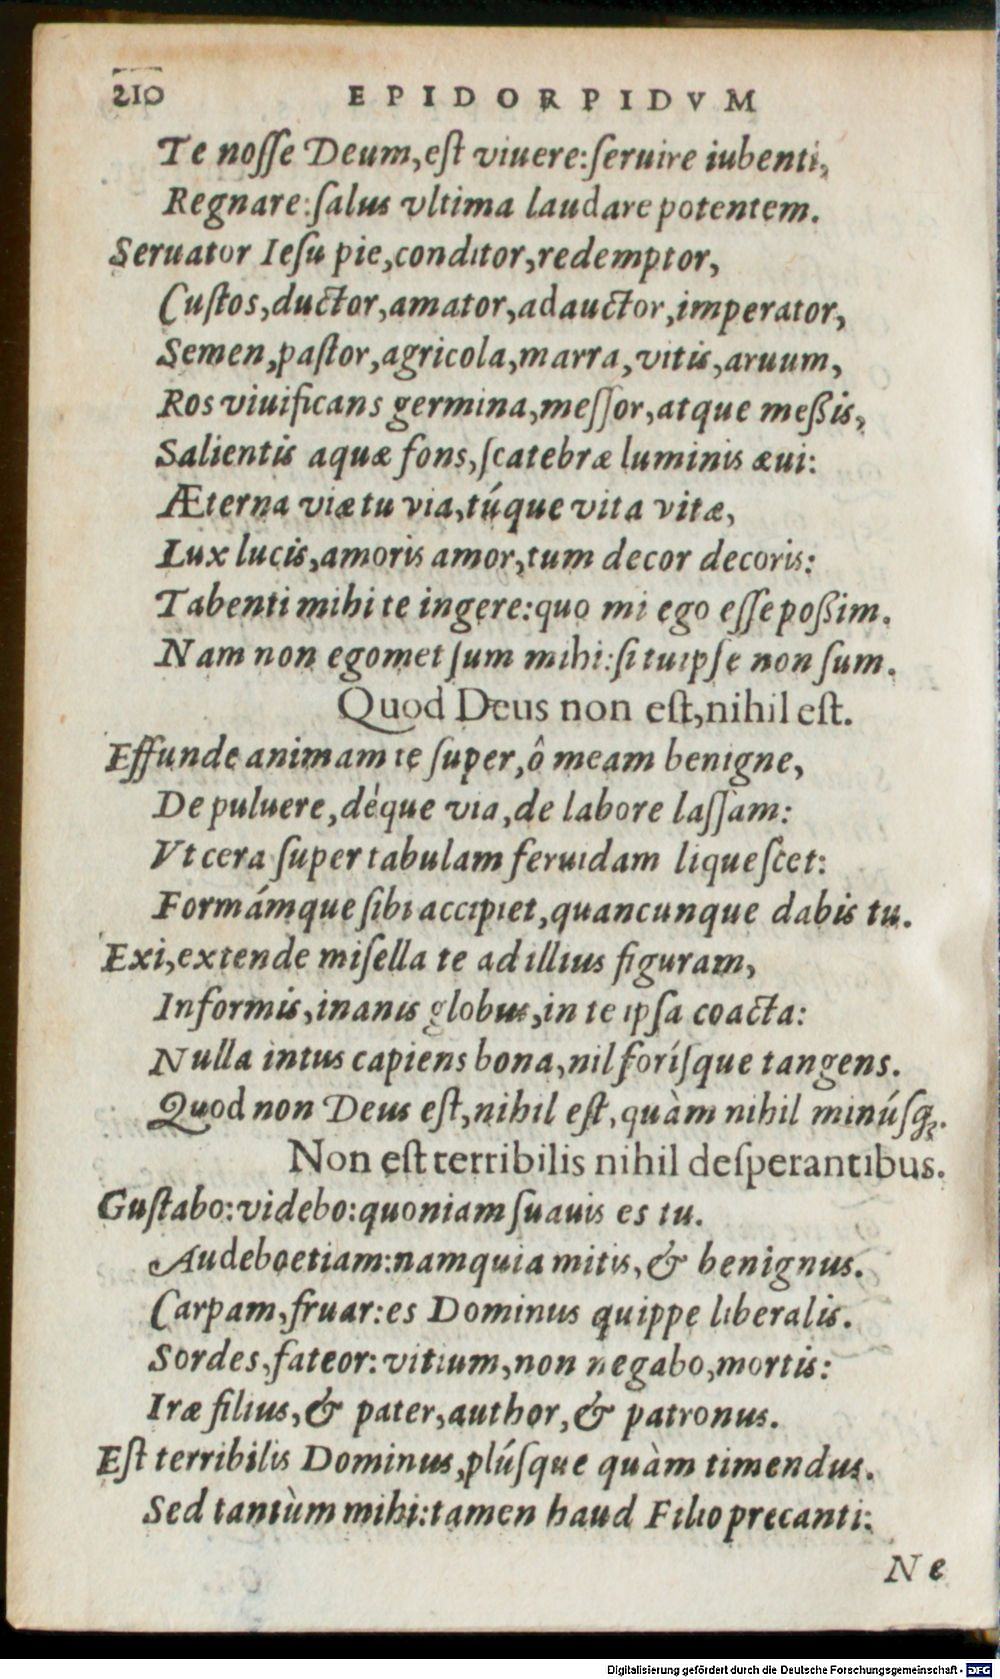 210 EPIDORPIDVM
Te noſſe Deum,eſt viuere:ſeruire iubenti,
Regnare:ſalus vltima laudare potentem.
Seruator Ieſu pie,conditor,redemptor,
Cuſtos,ductor,amator,adauctor,imperator,
Semen,paſtor,agricola,marra,vitis,aruum,
Ros viuificans germina,meſſor,atque meßis,
Salientis aquæ fons,ſcatebræ luminis æui:
Æterna viæ tu via,túque vita vitæ,
Lux lucis,amoris amor,tum decor decoris:
Tabenti mihi te ingere:quo mi ego eſſe poßim.
Nam non egomet ſum mihi:ſi tuipſe non ſum.
Quod Deus non eſt,nihil eſt.
Effunde animam te ſuper,ô meam benigne,
De puluere,déque via,de labore laſſam:
Vt cera ſuper tabulam feruidam liqueſcet:
Formámque ſibi accipiet,quancunque dabis tu.
Exi,extende miſella te ad illius figuram,
Informis,inanis globus,in te ipſa coacta:
Nulla intus capiens bona,nil foríſque tangens.
Quod non Deus eſt,nihil eſt,quàm nihil minúſq;.
Non eſt terribilis nihil deſperantibus.
Guſtabo:videbo:quoniam ſuauis es tu.
Audebo etiam:namquia mitis,& benignus.
Carpam,fruar:es Dominus quippe liberalis.
Sordes,fateor:vitium,non negabo,mortis:
Iræ filius,& pater,author,& patronus.
Eſt terribilis Dominus,plúſque quàm timendus.
Sed tantùm mihi:tamen haud Filio precanti:
Ne
Digitalisierung gefördert durch die Deutsche Forschungsgemeinschaft - DFG